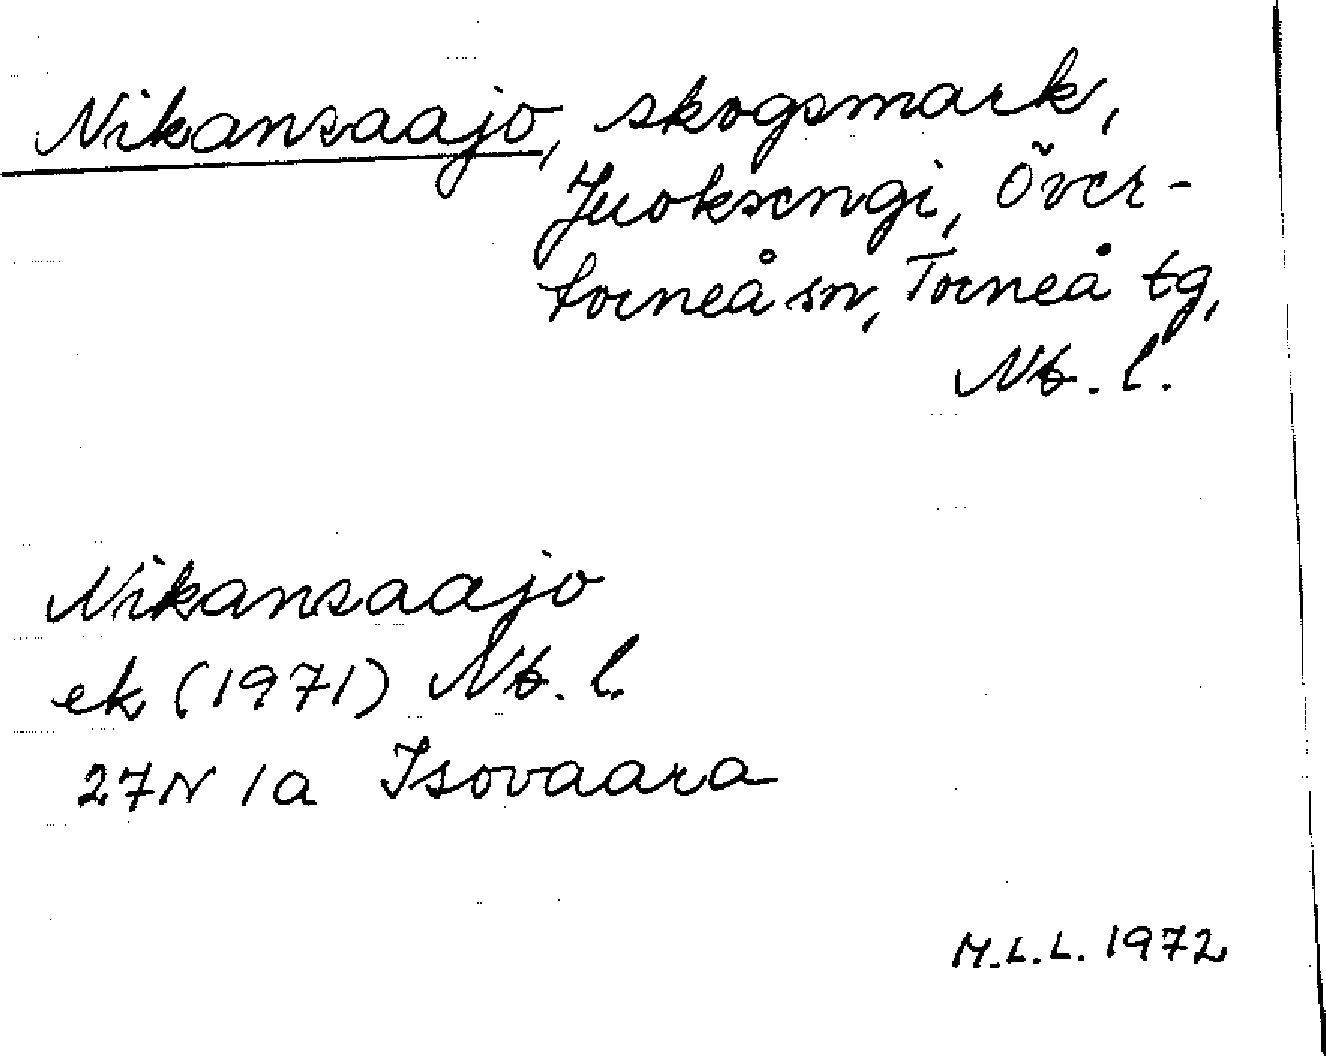 Nikansaajo, skogsmark,
Juoksengi, Över-
torneå sn, Torneå tg,
Nb. l.
Nikansaajo
ek (1971) Nb. l.
27N 1a Isovaara
M.L.L. 1972